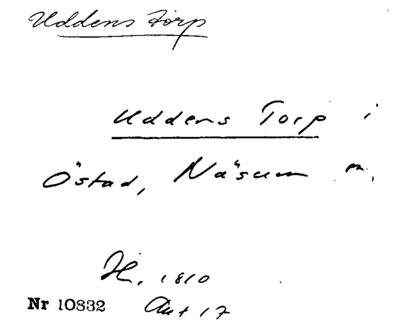 Uddens Torp
Uddens Torp i
Östad, Näsum sn,
H. 1810
Nr 10832 Akt 17